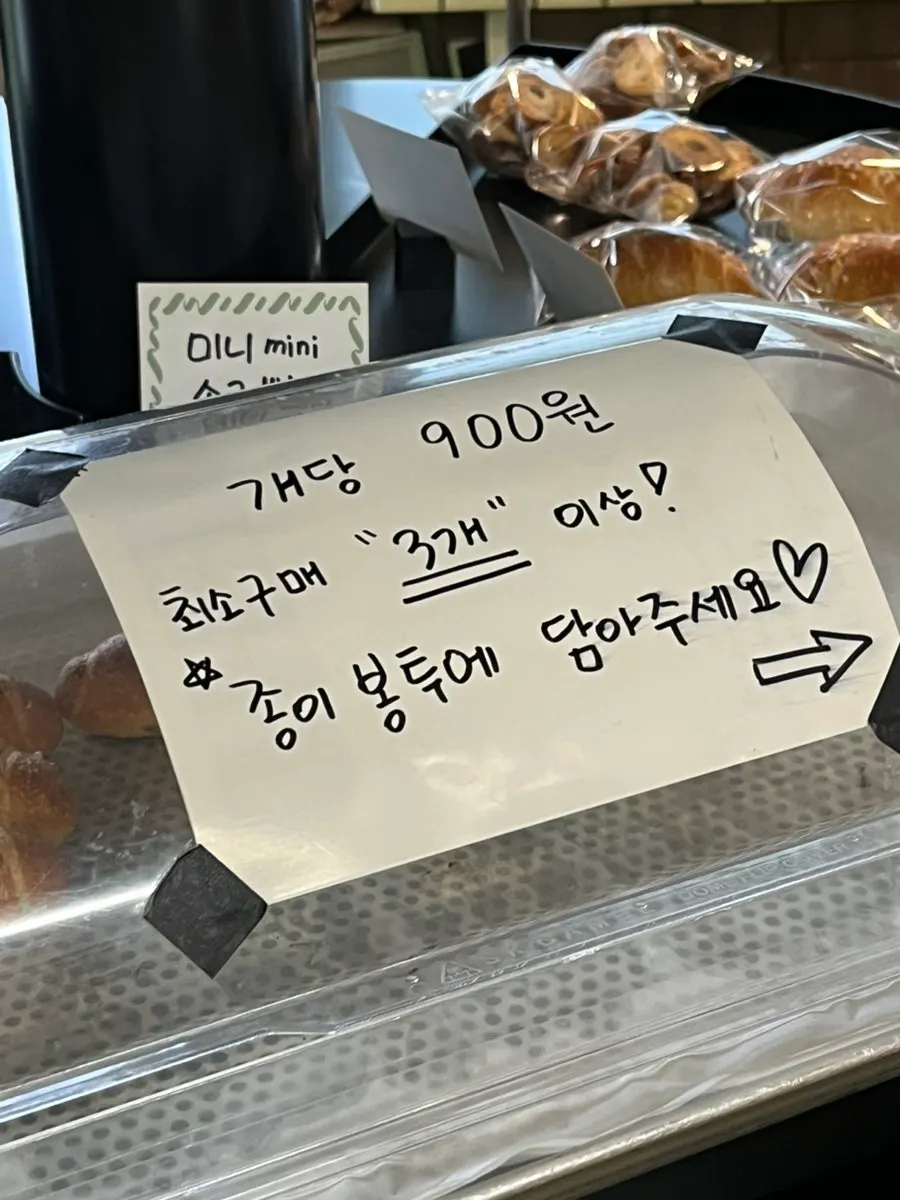 미니 mini
개당 900원
최소구매 "3개" 이상!
☆ 종이 봉투에 담아주세요♡
→